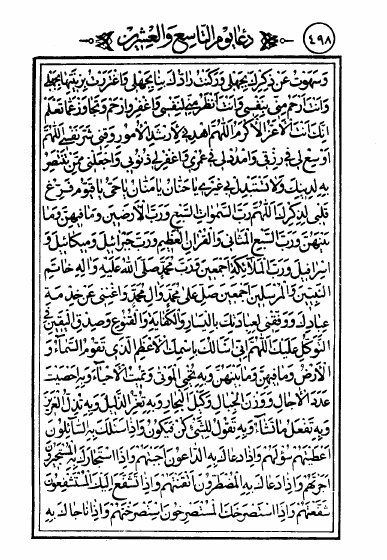 ٤٩٨
دعاء يوم التاسع والعشرين
وسهوت عن ذكرك بجهلي وركنت الى الدنيا بجهلي واغتررت بزينتها بجهلي
وانت ارحم مني بنفسي وانت انظر مني لنفسي فاغفر وارحم وتجاوز عما تعلم
انك انت الاعز الاكرم اللهم اهدني لارشد الامور وقني شر نفسي اللهم
اوسع لي في رزقي وامدد لي في عمري واغفر لي ذنوبي واجعلني ممن تنتصر
به لدينك ولا تستبدل بي غيري يا حنان يا منان يا حي يا قيوم فرغ
قلبي لذكرك اللهم رب السموات السبع ورب الارضين وما فيهن وما
بينهن ورب السبع المثاني والقران العظيم ورب جبرائيل وميكائيل و
اسرافيل ورب الملائكة اجمعين ورب محمد صلى الله عليه واله خاتم
النبيين والمرسلين اجمعين صل على محمد وال محمد واغنني عن خدمة
عبادك ووفقني لعبادتك باليسار والكفاية والقنوع وصدق اليقين في
التوكل عليك اللهم اني اسالك باسمك الاعظم الذي تقوم به السماء و
الارض وما فيهن وما بينهن وبه تحيي الموتى وتميت الاحياء وبه احصيت
عدد الاجال ووزن الجبال وكيل البحار وبه تعز الذليل وبه تذل العزيز
وبه تفعل ما تشاء وبه تقول للشيء كن فيكون واذا سئلك به السائلون
اعطيتهم سؤلهم واذا دعاك به الداعون اجبتهم واذا استجارك به المستجيرون
اجرتهم واذا دعاك به المضطرون انقذتهم واذا تشفع به اليك المتشفعون
شفعتهم واذا استصرخك به المستصرخون استصرختهم واذا ناجاك به